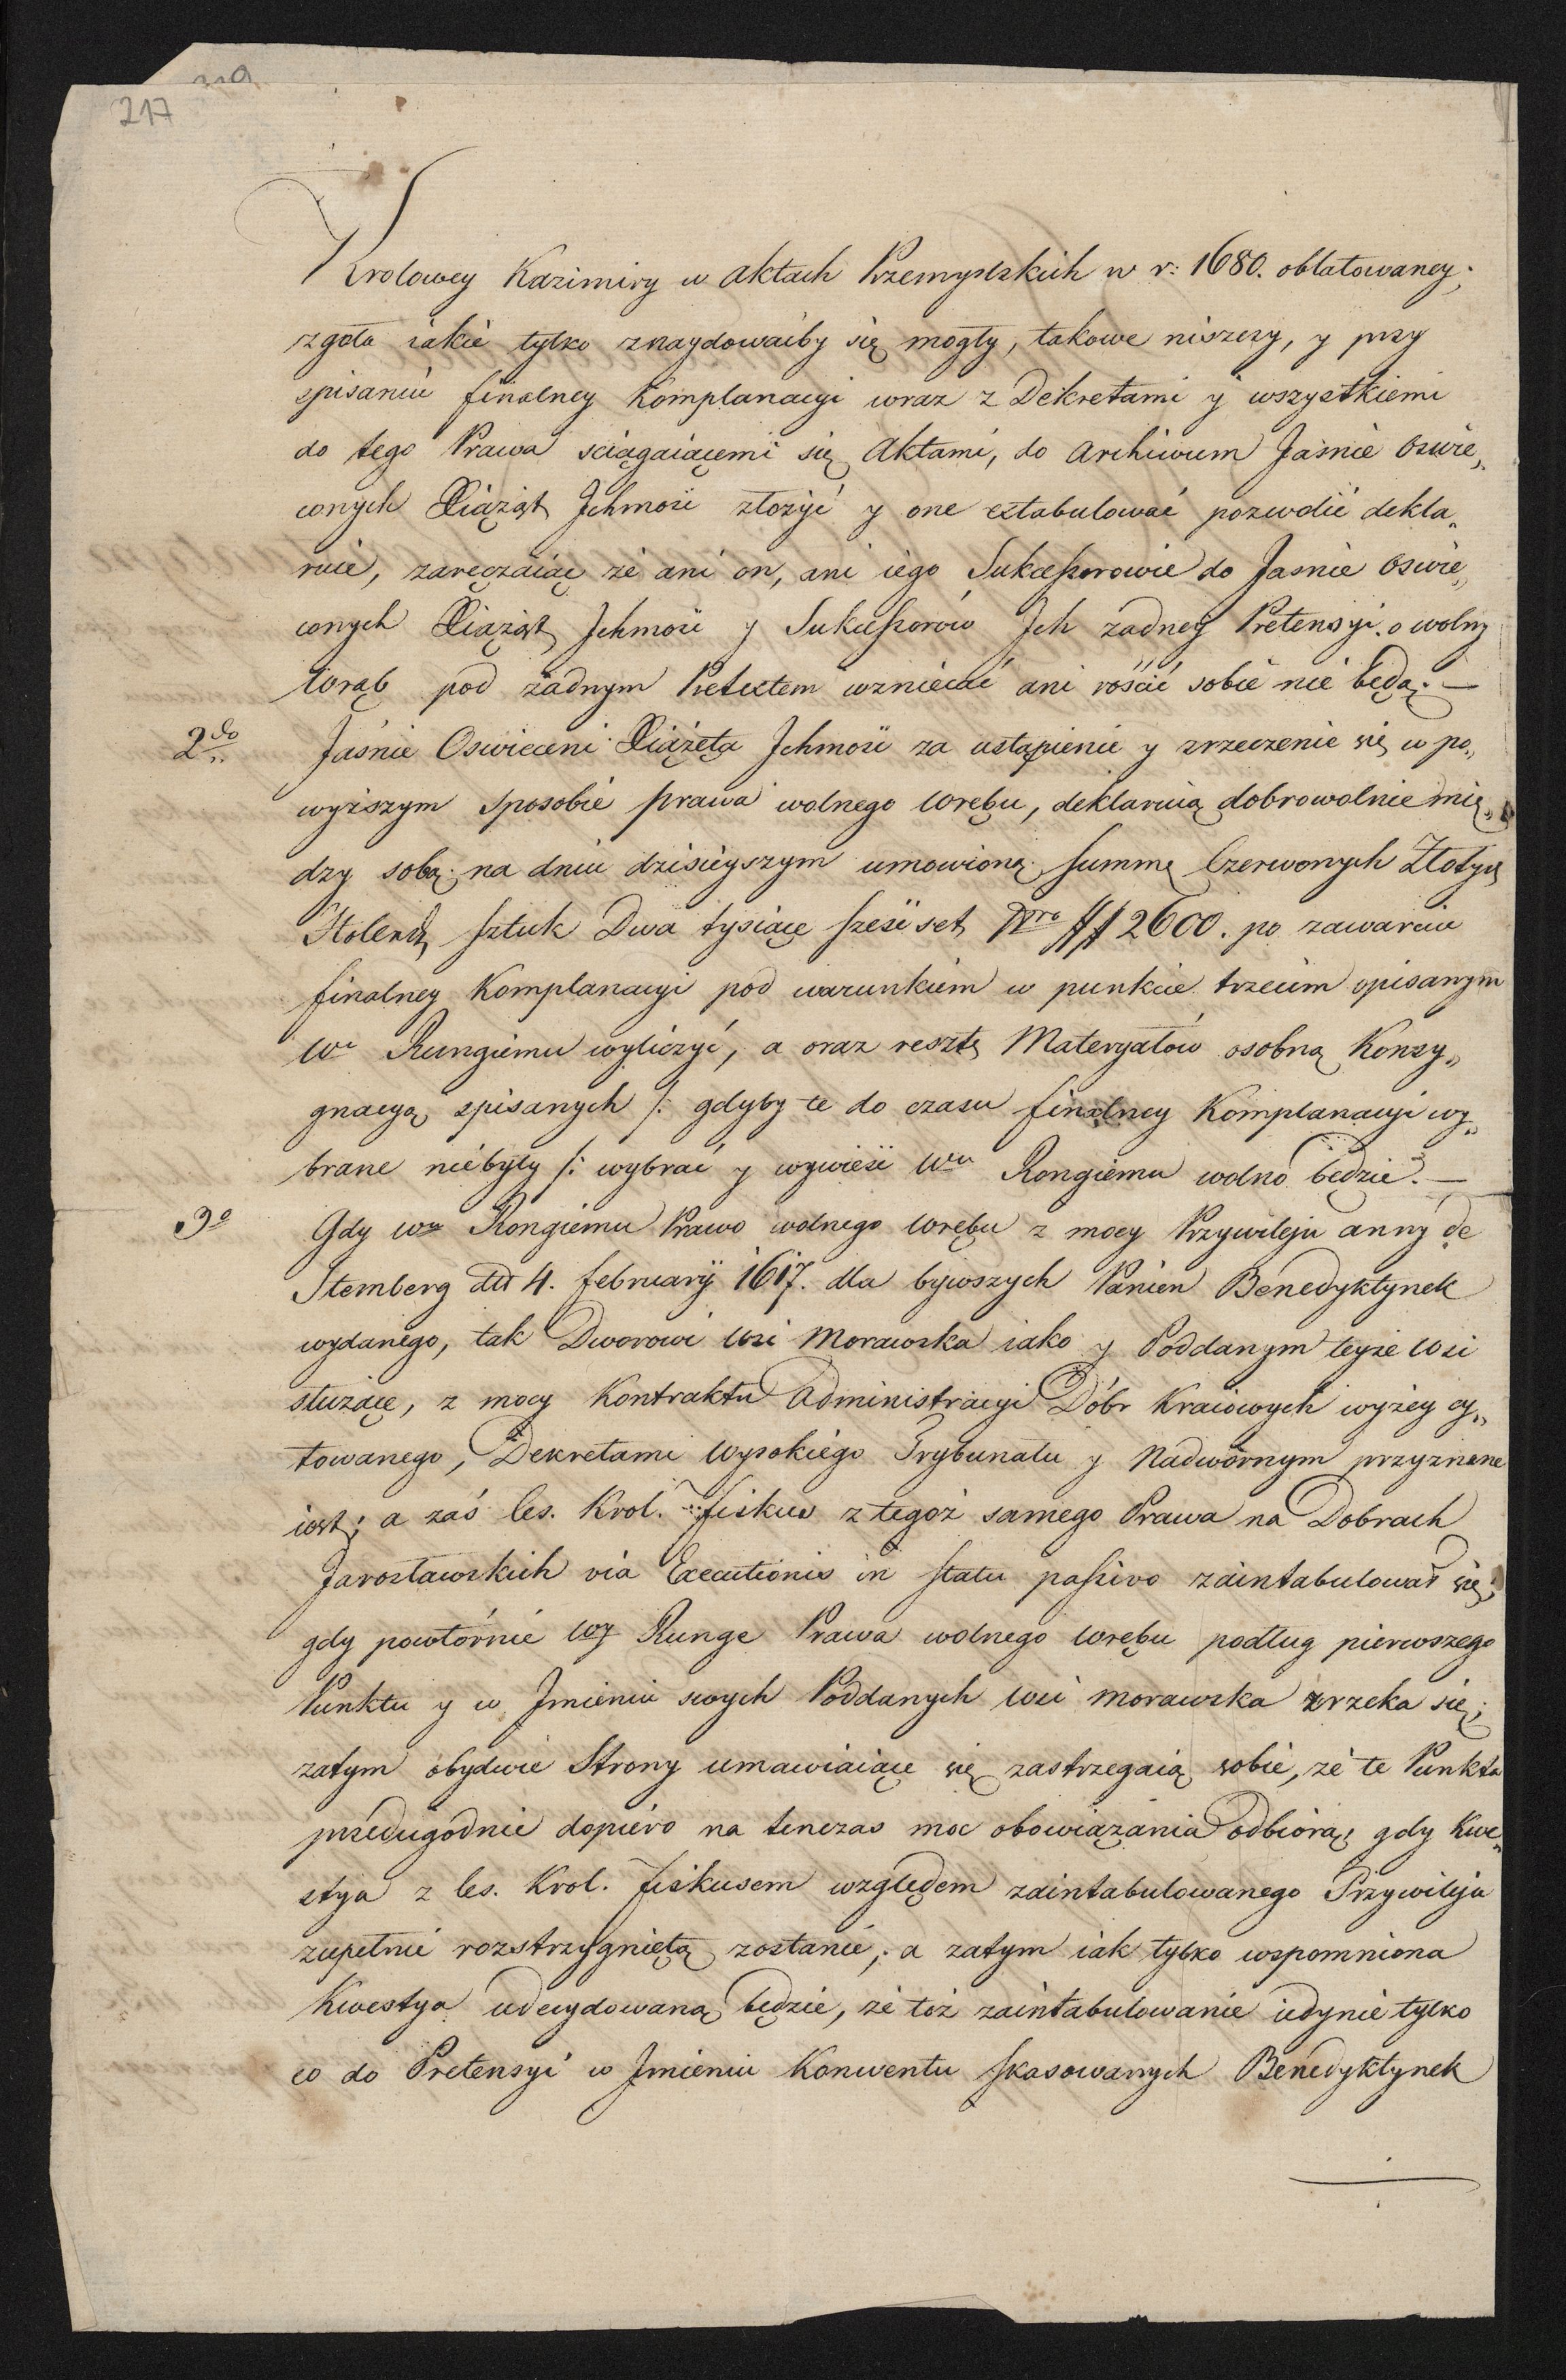 217
Krolowey Kazimiry w Aktach Przemyslskich w r: 1680. oblatowaney;
zgoła iakie tylko znaydowaćby się mogły, takowe niszczy, y przy
spisaniu finalney Komplanacyi wraz z Dekretami y wszystkiemi
do tego Prawa sciągaiącemi się Aktami, do Archiwum Jaśnie Oswie„
conych Xiążąt Jchmość złożyć y one extabulować pozwolić dekla„
ruie, zaręczaiąc że ani on, ani iego Sukceßorowie do Jasnie Oswie„
conych Xiążąt Jchmość y Sukceßorów Jch żadney Pretensyi o wolny
Wrąb pod żadnym Pretextem wzniecać ani rościć sobie nie będą. —
2do Jaśnie Oswieceni Xiążęta Jchmość za ustąpienie y zrzeczenie się w po„
wyższym sposobie prawa wolnego Wrębu, deklaruią dobrowolnie mię„
dzy sobą na dniu dzisieyszym umowioną Summę Czerwonych Złotych
Holend. sztuk Dwa tysiące sześć set Nro ## 2600. po zawarciu
finalney Komplanacyi pod warunkiem w punkcie trzecim opisanym
Wu Rungiemu wyliczyć, a oraz resztę Materyałów osobną Konsy„
gnacyą spisanych /: gdyby te do czasu finalney Komplanacyi wy„
brane niebyły /: wybrać y wywieść Wu Rongiemu wolno będzie. —
3o Gdy Wu Rongiemu Prawo wolnego Wrębu z mocy Przywileju Anny de
Stemberg dtt 4. february 1617. dla bywszych Panien Benedyktynek
wydanego, tak Dworowi Wsi Morawska iako y Poddanym teyże Wsi
służące, z mocy Kontraktu Administracyi Dóbr Kraiowych wyżey cy„
towanego, Dekretami Wysokiego Trybunału y Nadwornym przyznane
iest; a zaś Ces. Krol. Fiskus z tegoż samego Prawa na Dobrach
Jarosławskich via Executionis in Statu paßivo zaintabulował się;
gdy powtórnie Wy Runge Prawa wolnego Wrębu podług pierwszego
Punktu y w Jmieniu swych Poddanych Wsi Morawska zrzeka się;
zatym obydwie Strony umawiaiące się zastrzegaią sobie, że te Punkta
przedugodnie dopiero na tenczas moc obowiązania odbiorą, gdy Kwe„
stya z Ces. Krol. Fiskusem względem zaintabulowanego Przywileju
zupełnie rozstrzygniętą zostanie; a zatym iak tylko wspomniona
Kwestya udecydowaną będzie, że toż zaintabulowanie iedynie tylko
co do Pretensyi w Jmieniu Konwentu skasowanych Benedyktynek